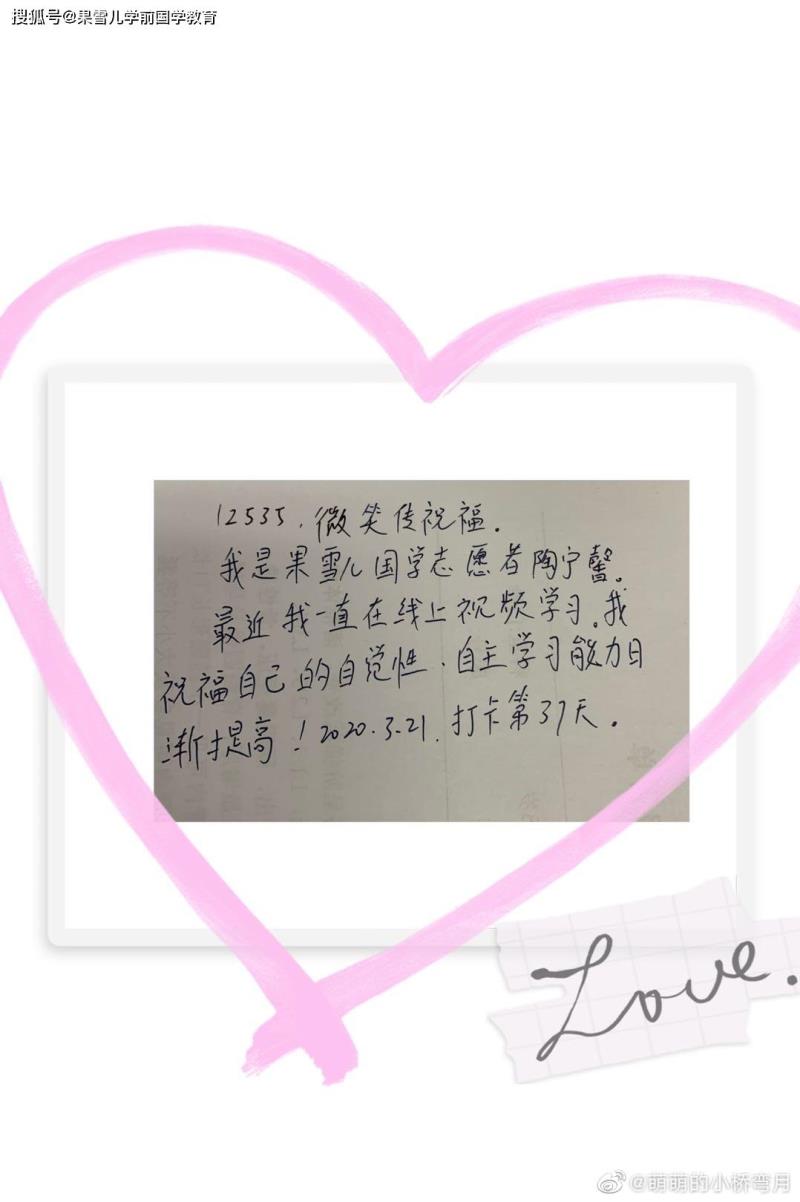 搜狐号@果雪儿学前国学教育
12535，微笑传祝福．
我是果雪儿国学志愿者陶宁馨。
最近我一直在线上视频学习。我
祝福自己的自觉性、自主学习能力日
渐提高！2020.3.21．打卡第37天。
Love.
@萌萌的小桥弯月